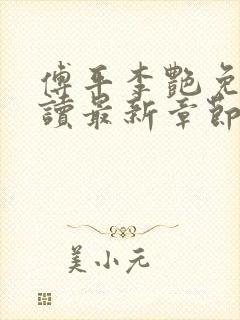 傅平李艷免
讀最新章節
美小元